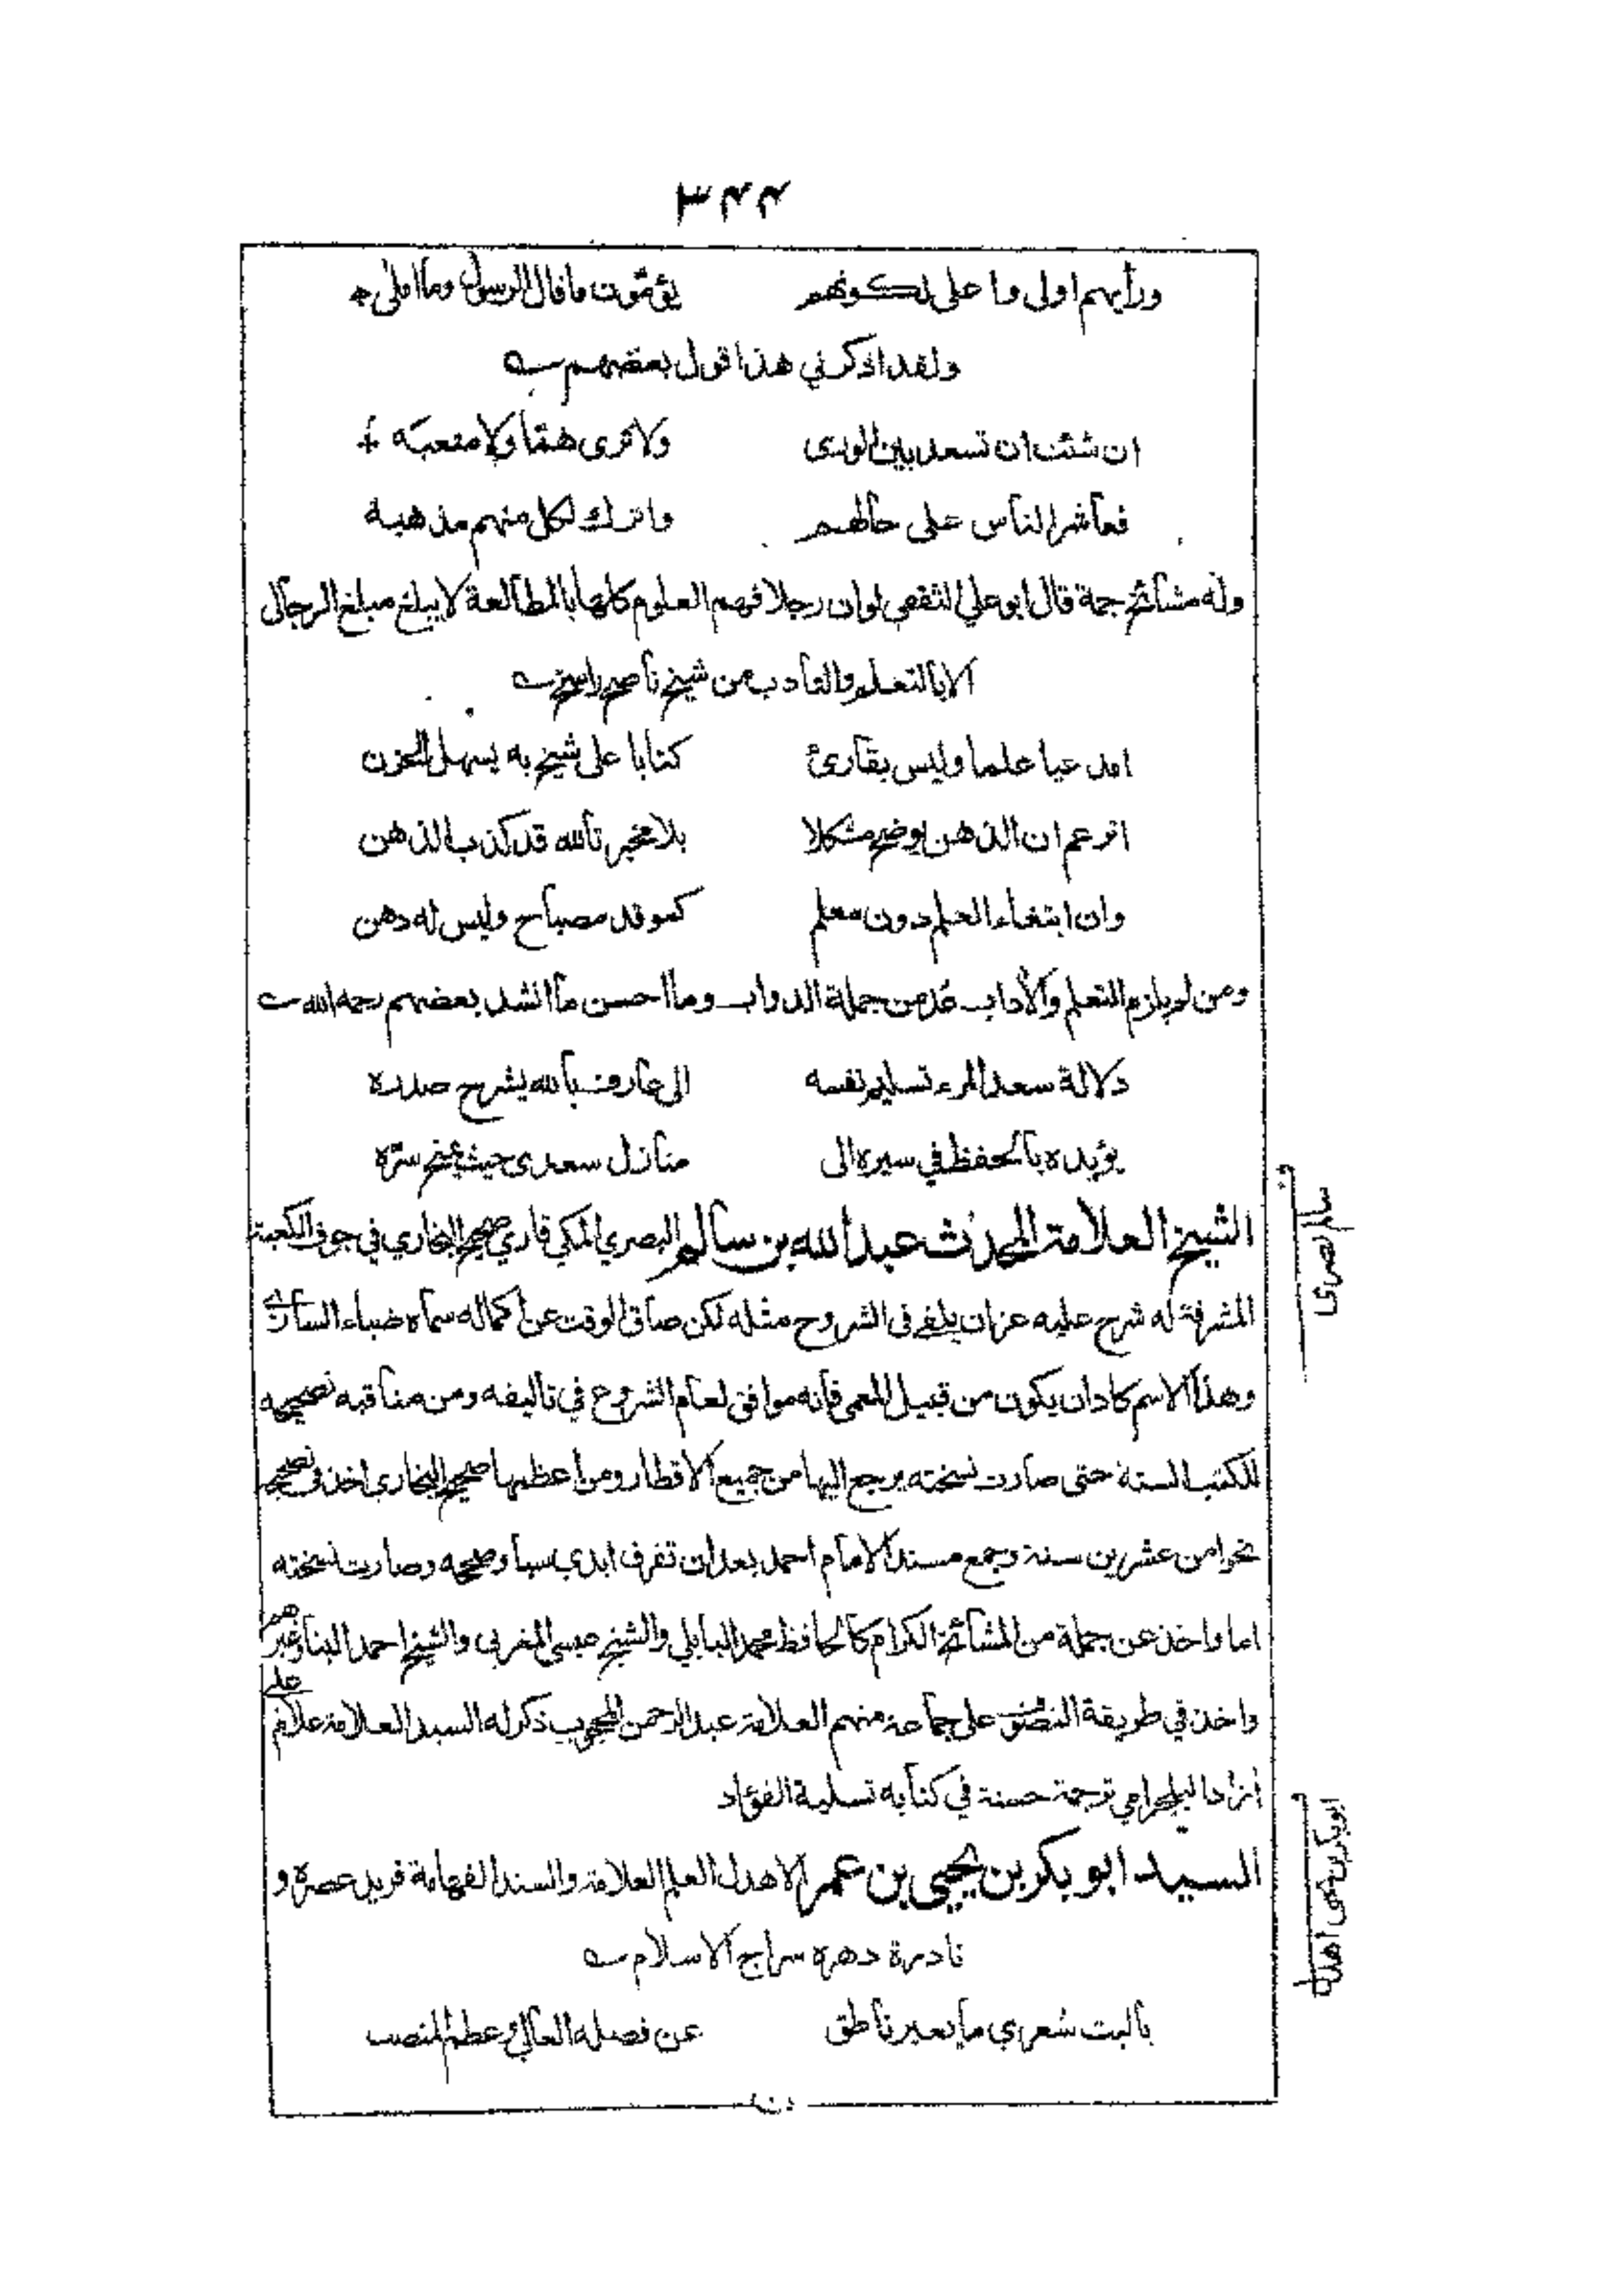 ٣٤٤
ورأيهم اولى واعلى لكونهم يؤمّون ما قال الرسول وما املى
ولقد اذكرني هذا قول بعضهم
ان شئت ان تسعد بين الورى ولا ترى همّا ولا متعبه
فعاشر الناس على حالهم واترك لكل منهم مذهبه
وله مشائخ جمة قال ابو علي الثقفي لو ان رجلا فهم العلوم كلها بالمطالعة لا يبلغ مبلغ الرجال
الا بالتعلم والتأدب من شيخ ناصح راسخ
امدعيا علما وليس بقارئ كتابا على شيخ به يسهل الحزن
اتزعم ان الذهن يوضح مشكلا بلا مخبر تالله قد كذب الذهن
وان ابتغاء العلم دون معلم كموقد مصباح وليس له دهن
ومن لم يلازم التعلم والآداب عُدّ من جملة الدواب وما احسن ما انشد بعضهم رحمه الله
دلالة سعد المرء تسليم نفسه الى عارف بالله يشرح صدره
يؤيده بالحفظ في سيره الى منازل سعدى حيث يمنح سرّه
الشيخ العلامة المحدث عبد الله بن سالم البصري المكي قاري صحيح البخاري في جوف الكعبة
سالم البصرى
المشرفة له شرح عليه عز ان يلفى في الشروح مثله لكن ضاق الوقت عن اكماله سماه ضياء الساري
وهذا الاسم كاد ان يكون من قبيل المعمى فانه موافق لعام الشروع في تاليفه ومن مناقبه تصحيحه
للكتب الستة حتى صارت نسخته يرجع اليها من جميع الاقطار ومن اعظمها صحيح البخاري اخذ في تصحيحه
نحوا من عشرين سنة وجمع مسند الامام احمد بعد ان تفرق ايدي سبا وصححه وصارت نسخته
اما واخذ عن جملة من المشائخ الكرام كالحافظ محمد البابلي والشيخ عيسى المغربي والشيخ احمد البنا وغيرهم
واخذ في طريقة التصوف على جماعة منهم العلامة عبد الرحمن المحجوب ذكر له السيد العلامة غلام علي
ازاد البلجرامي ترجمة حسنة في كتابه تسلية الفؤاد
السيد ابو بكر بن يحيى بن عمر الاهدل العلم العلامة والسند الفهامة فريد عصره و
ابوبكر بن يحيى اهدل
نادرة دهره سراج الاسلام
يا ليت شعري ما يعبر ناطق عن فضله العالي وعظم المنصب